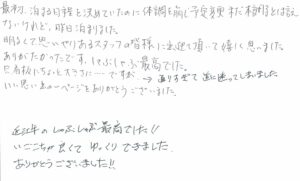 最初、泊まる日程を決めていたのに体調を崩し予定変更 まだ 絶好とは言え
ないけれど、昨日泊まりました。
明るくて思いやりあるスタッフの皆様に出迎えて頂いて嬉しく思いました。
ありがたかったです。しゃぶしゃぶ最高でした。
ちょっと大きさに…ですが → 通りすぎて道に迷ってしまいました。
いい思い出のページをありがとうございました。
近江牛のしゃぶしゃぶ最高でした!!
いごこちが良くてゆっくりできました。
ありがとうございました!!